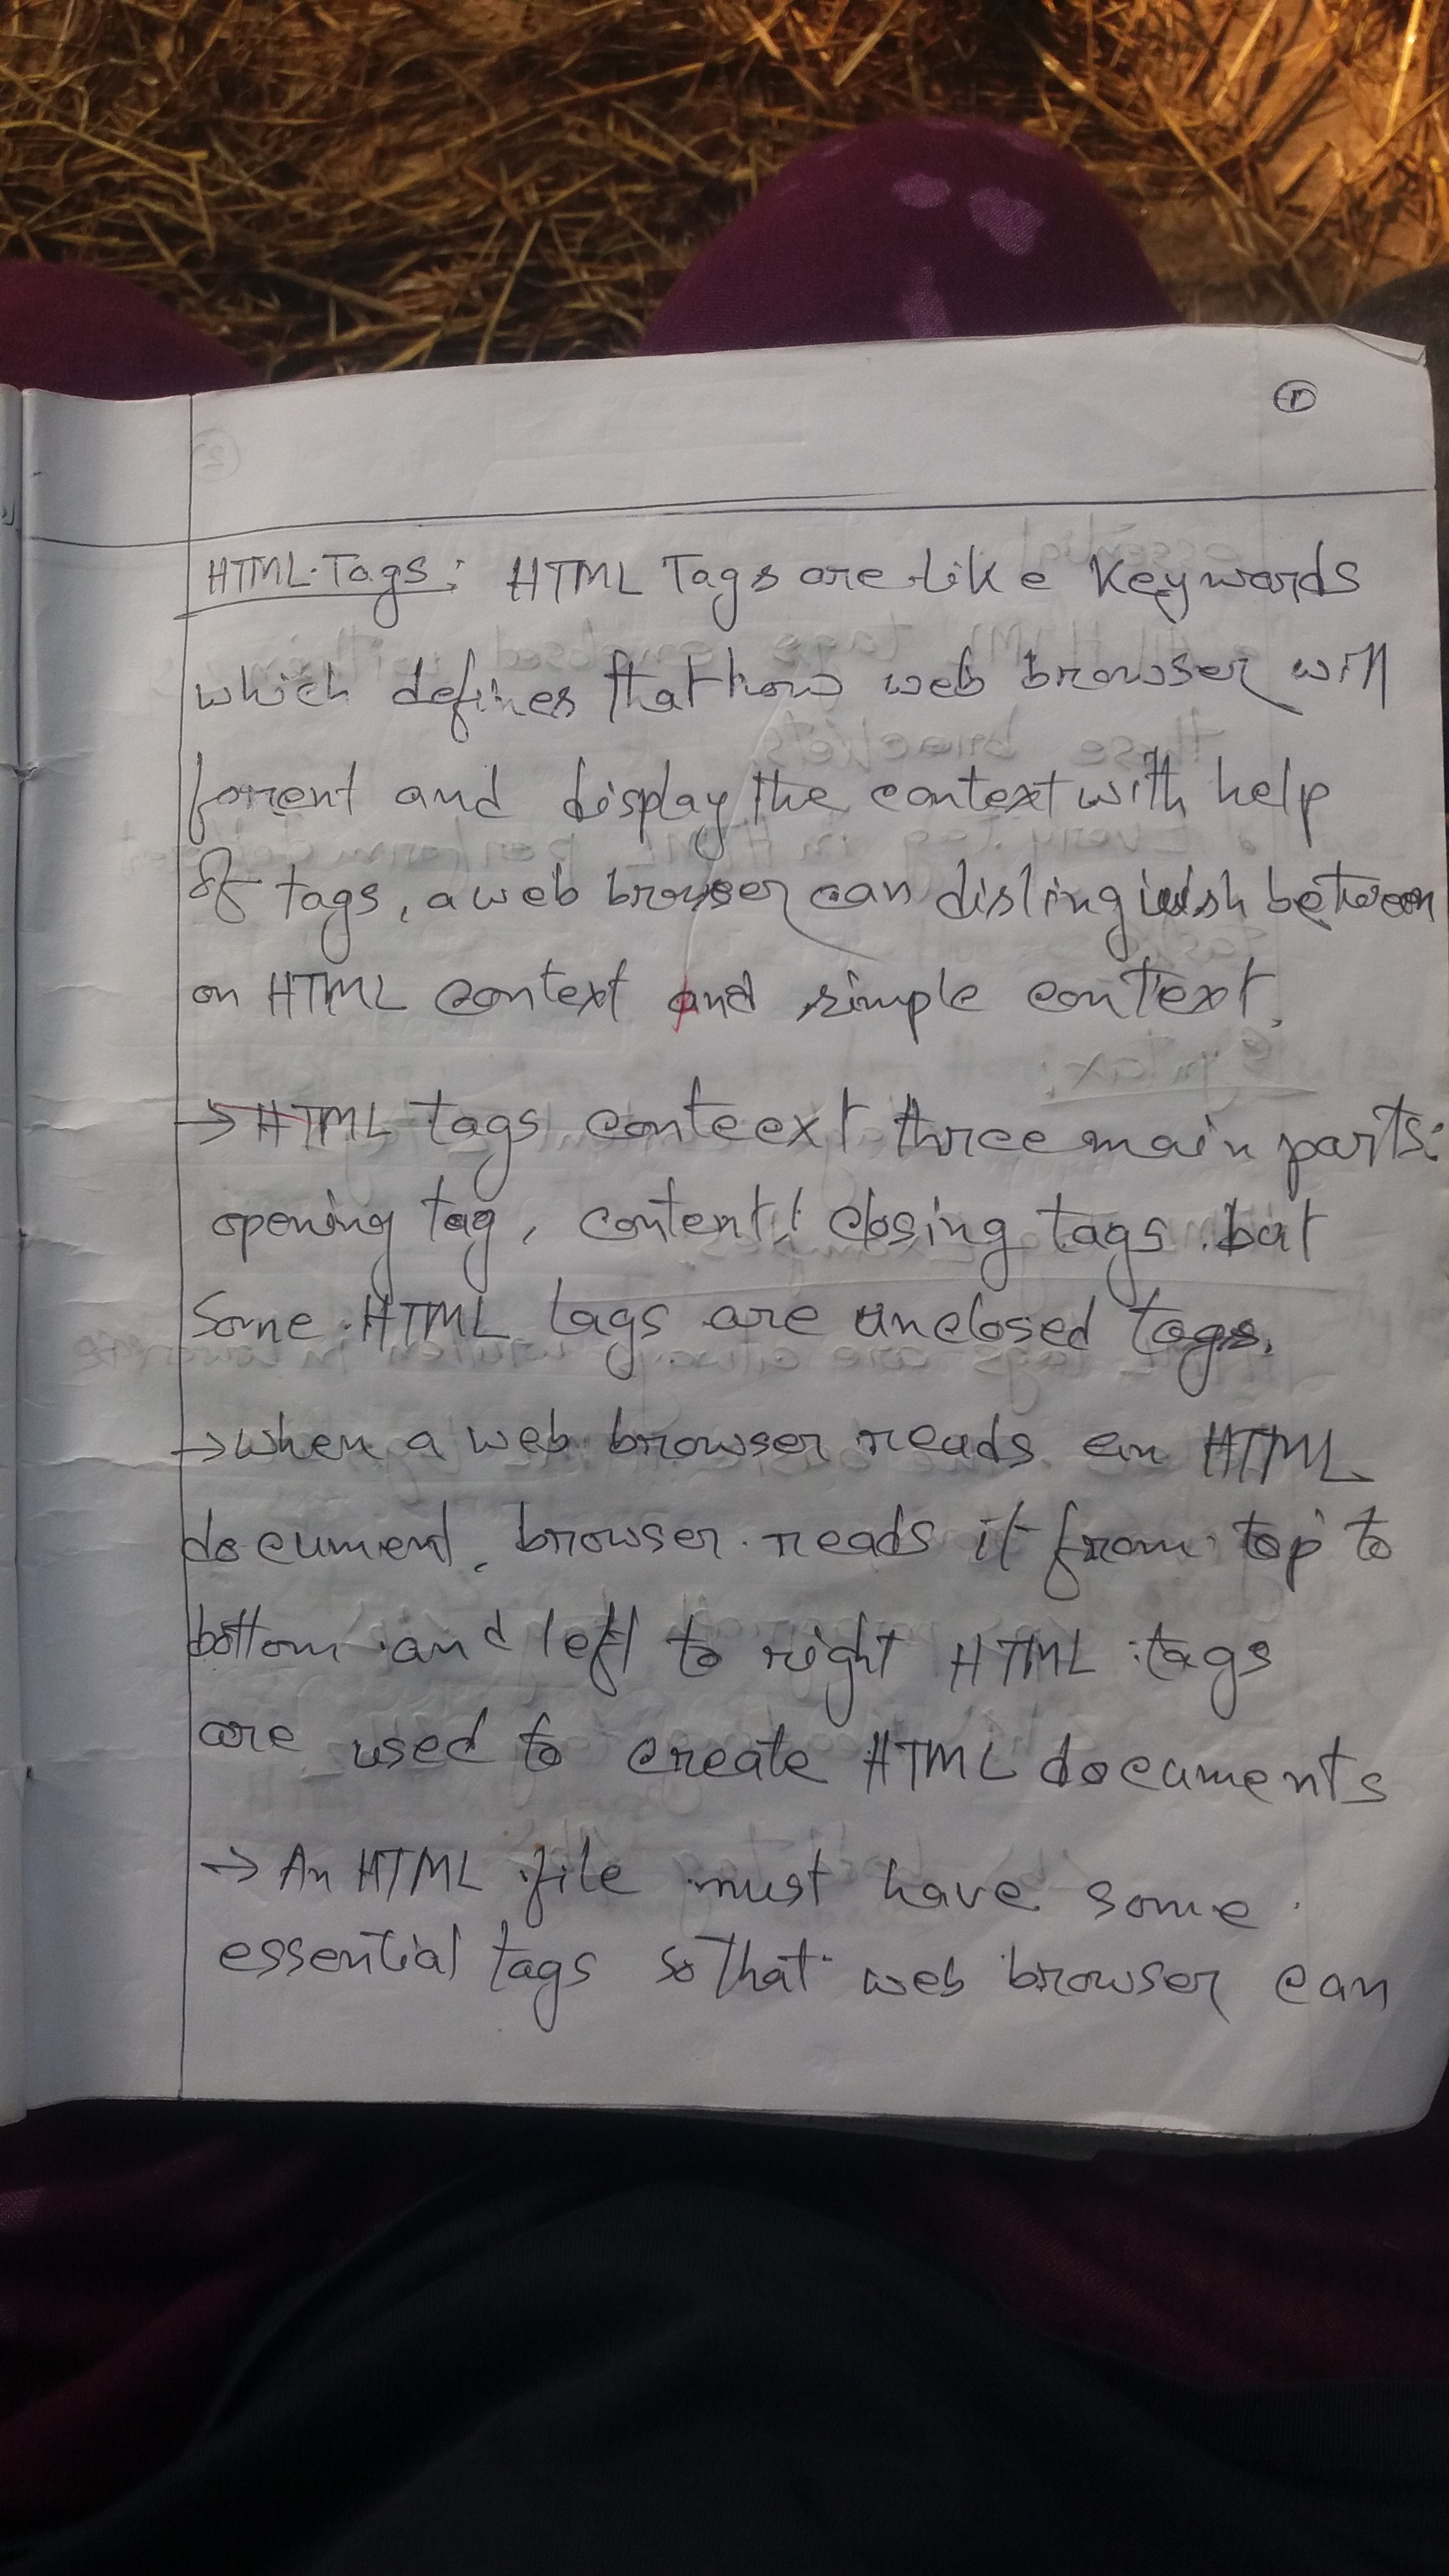 ①
HTML Tags: HTML Tags are like Keywords
which defines that how web browser will
forment and display the context with help
of tags, a web browser can distinguish between
on HTML context and simple context.
→HTML tags conteext three main parts:
opening tag, content, closing tags. but
Some HTML tags are unclosed tags.
→when a web browser reads an HTML
document, browser reads it from top to
bottom and left to right HTML tags
are used to create HTML documents
→ An HTML file must have some
essential tags so that web browser can